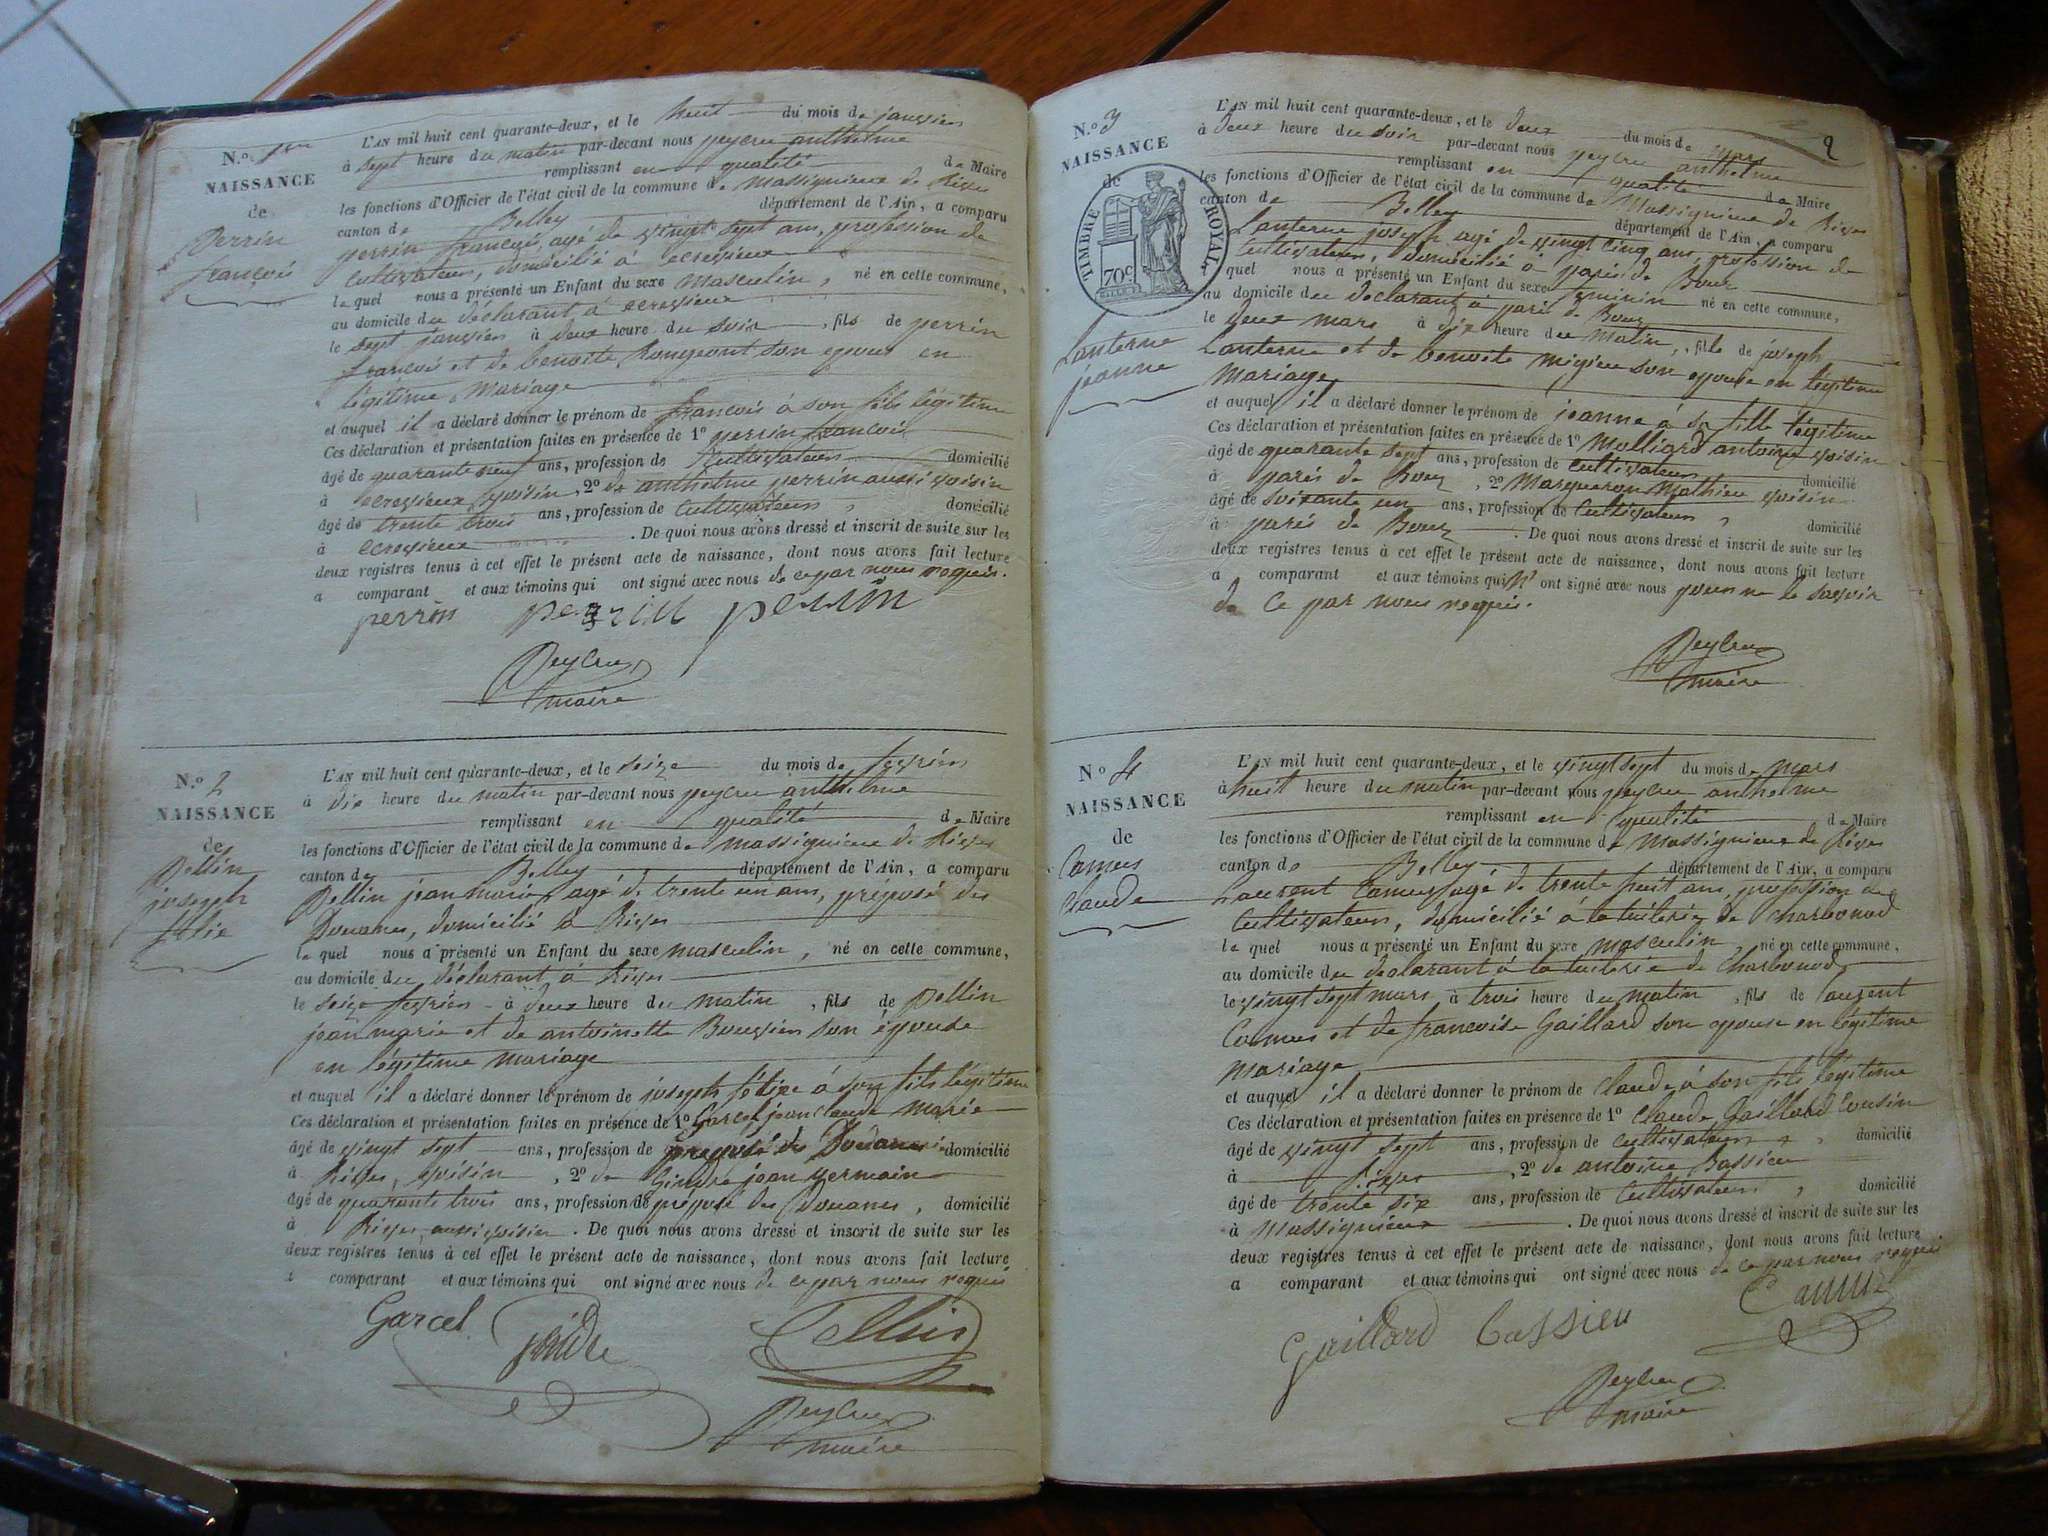 N.º 1er
NAISSANCE
de
Perrin
françois
L'AN mil huit cent quarante-deux, et le huit du mois de janvier
à sept heure du matin par-devant nous peycru anthelme
remplissant en qualité de Maire
les fonctions d'Officier de l'état civil de la commune de Massignieux de Rives
canton de Belley département de l'Ain, a comparu
perrin françois, agé de vingt sept ans, profession de
Cultivateur, domicilié à ecrevieux
le quel nous a présenté un Enfant du sexe masculin, né en cette commune,
au domicile du déclarant à ecrevieux
le sept janvier à deux heure du soir, fils de perrin
françois et de benoite Rougeont son epouse en
légitime Mariage
et auquel il a déclaré donner le prénom de françois à son fils légitime
Ces déclaration et présentation faites en présence de 1º perrin francois
âgé de quarante neuf ans, profession de Cultivateur domicilié
à ecrevieux voisin, 2º de anthelme perrin aussi voisin
âgé de trente trois ans, profession de Cultivateur, domicilié
à ecrevieux. De quoi nous avons dressé et inscrit de suite sur les
deux registres tenus à cet effet le présent acte de naissance, dont nous avons fait lecture
a comparant et aux témoins qui ont signé avec nous de ce par nous requis.
perrin perrin perrin
Peycru
maire
N.º 2
NAISSANCE
de
Pellin
joseph
félix
L'AN mil huit cent quarante-deux, et le seize du mois de fevrier
à dix heure du matin par-devant nous peycru anthelme
remplissant en qualité de Maire
les fonctions d'Officier de l'état civil de la commune de Massignieux de Rives
canton de Belley département de l'Ain, a comparu
Pellin jean marie, agé de trente un ans, préposé des
Douanes, domicilié à Rives
le quel nous a présenté un Enfant du sexe masculin, né en cette commune,
au domicile du déclarant à Rives
le seize fevrier à deux heure du matin, fils de Pellin
jean marie et de antoinette Bouvier son épouse
en légitime mariage
et auquel il a déclaré donner le prénom de joseph félix à son fils légitime
Ces déclaration et présentation faites en présence de 1º Garcel jean claude marie
âgé de vingt sept ans, profession de preposé des Douanes domicilié
à Rives, voisin, 2º de Gindre jean germain
âgé de quarante trois ans, profession de préposé des Douanes, domicilié
à Rives aussi voisin. De quoi nous avons dressé et inscrit de suite sur les
deux registres tenus à cet effet le présent acte de naissance, dont nous avons fait lecture
a comparant et aux témoins qui ont signé avec nous de ce par nous requis
Garcel Gindre Pellin
Peycru
maire
2
N.º 3
NAISSANCE
de
TIMBRE ROYAL
70 c.
Lanterne
jeanne
L'AN mil huit cent quarante-deux, et le deux du mois de mars
à deux heure du soir par-devant nous peycru anthelme
remplissant en qualité de Maire
les fonctions d'Officier de l'état civil de la commune de Massignieux de Rives
canton de Belley département de l'Ain, a comparu
Lanterne joseph agé de vingt cinq ans, profession de
Cultivateur, domicilié à parés de Bour
le quel nous a présenté un Enfant du sexe feminin né en cette commune,
au domicile du déclarant à parés de Bour
le deux mars à dix heure du matin, fille de joseph
Lanterne et de benoite migieu son epouse en légitime
Mariage
et auquel il a déclaré donner le prénom de jeanne à sa fille légitime
Ces déclaration et présentation faites en présence de 1º Molliard antoine voisin
âgé de quarante sept ans, profession de Cultivateur domicilié
à parés de Bour, 2º Margueron Mathieu voisin
âgé de soixante un ans, profession de Cultivateur, domicilié
à parés de Bour. De quoi nous avons dressé et inscrit de suite sur les
deux registres tenus à cet effet le présent acte de naissance, dont nous avons fait lecture
a comparant et aux témoins qui n' ont signé avec nous pour ne le savoir
de ce par nous requis.
Peycru
maire
Nº 4
NAISSANCE
de
Camus
Claude
L'AN mil huit cent quarante-deux, et le vingt sept du mois de mars
à huit heure du matin par-devant nous peycru anthelme
remplissant en qualité de Maire
les fonctions d'Officier de l'état civil de la commune de Massignieux de Rives
canton de Belley département de l'Ain, a comparu
Laurent Camus, agé de trente huit ans, profession de
Cultivateur, domicilié à la tuilerie de Charbonod
le quel nous a présenté un Enfant du sexe masculin, né en cette commune,
au domicile du déclarant à la tuilerie de Charbonod
le vingt sept mars à trois heure du matin, fils de laurent
Camus et de francoise Gaillard son epouse en légitime
mariage
et auquel il a déclaré donner le prénom de Claude à son fils légitime
Ces déclaration et présentation faites en présence de 1º Claude Gaillard Cousin
âgé de vingt sept ans, profession de Cultivateur, domicilié
à Rives, 2º de antoine Bassieu
âgé de trente six ans, profession de Cultivateur, domicilié
à Massignieux. De quoi nous avons dressé et inscrit de suite sur les
deux registres tenus à cet effet le présent acte de naissance, dont nous avons fait lecture
a comparant et aux témoins qui ont signé avec nous de ce par nous requis
Gaillard Bassieu Camus
Peycru
maire